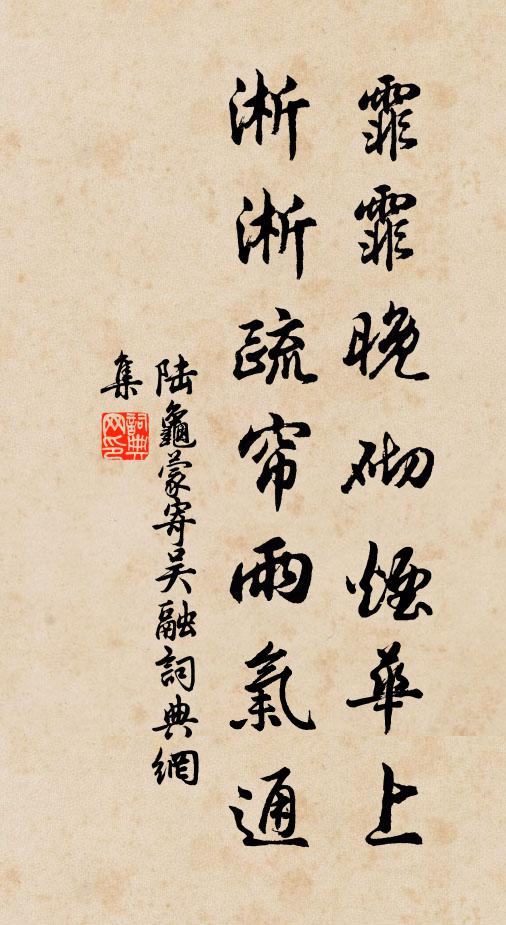 霏霏晚砌煙華上
淅淅疏帘雨氣通
陆龜蒙寄吴融詞典網
集
詞典
网印